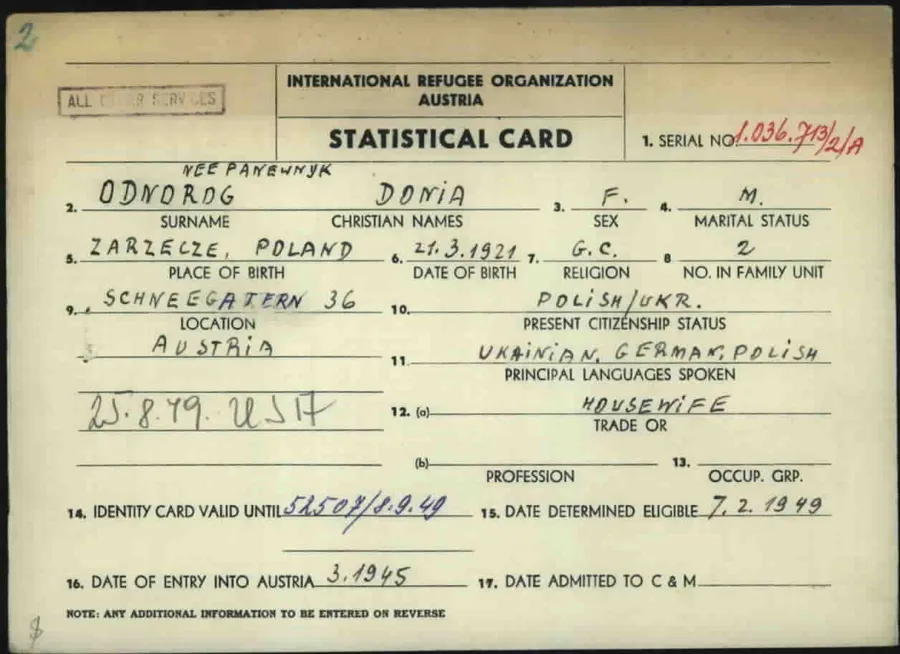 2
INTERNATIONAL REFUGEE ORGANIZATION
AUSTRIA
ALL OTHER SERVICES
STATISTICAL CARD
1. SERIAL NO. 1.036.713/2/A
NEE PANEWNYK
2. ODNOROG DONIA 3. F. 4. M.
SURNAME CHRISTIAN NAMES SEX MARITAL STATUS
5. ZARZECZE, POLAND 6. 21.3.1921 7. G.C. 8 2
PLACE OF BIRTH DATE OF BIRTH RELIGION NO. IN FAMILY UNIT
9. SCHNEEGATERN 36 10. POLISH/UKR.
LOCATION PRESENT CITIZENSHIP STATUS
AUSTRIA 11. UKAINIAN, GERMAN, POLISH
PRINCIPAL LANGUAGES SPOKEN
25.8.49. USA 12. (a) HOUSEWIFE
TRADE OR
(b) 13.
PROFESSION OCCUP. GRP.
14. IDENTITY CARD VALID UNTIL 52507/8.9.49 15. DATE DETERMINED ELIGIBLE 7.2.1949
16. DATE OF ENTRY INTO AUSTRIA 3.1945 17. DATE ADMITTED TO C & M
NOTE: ANY ADDITIONAL INFORMATION TO BE ENTERED ON REVERSE